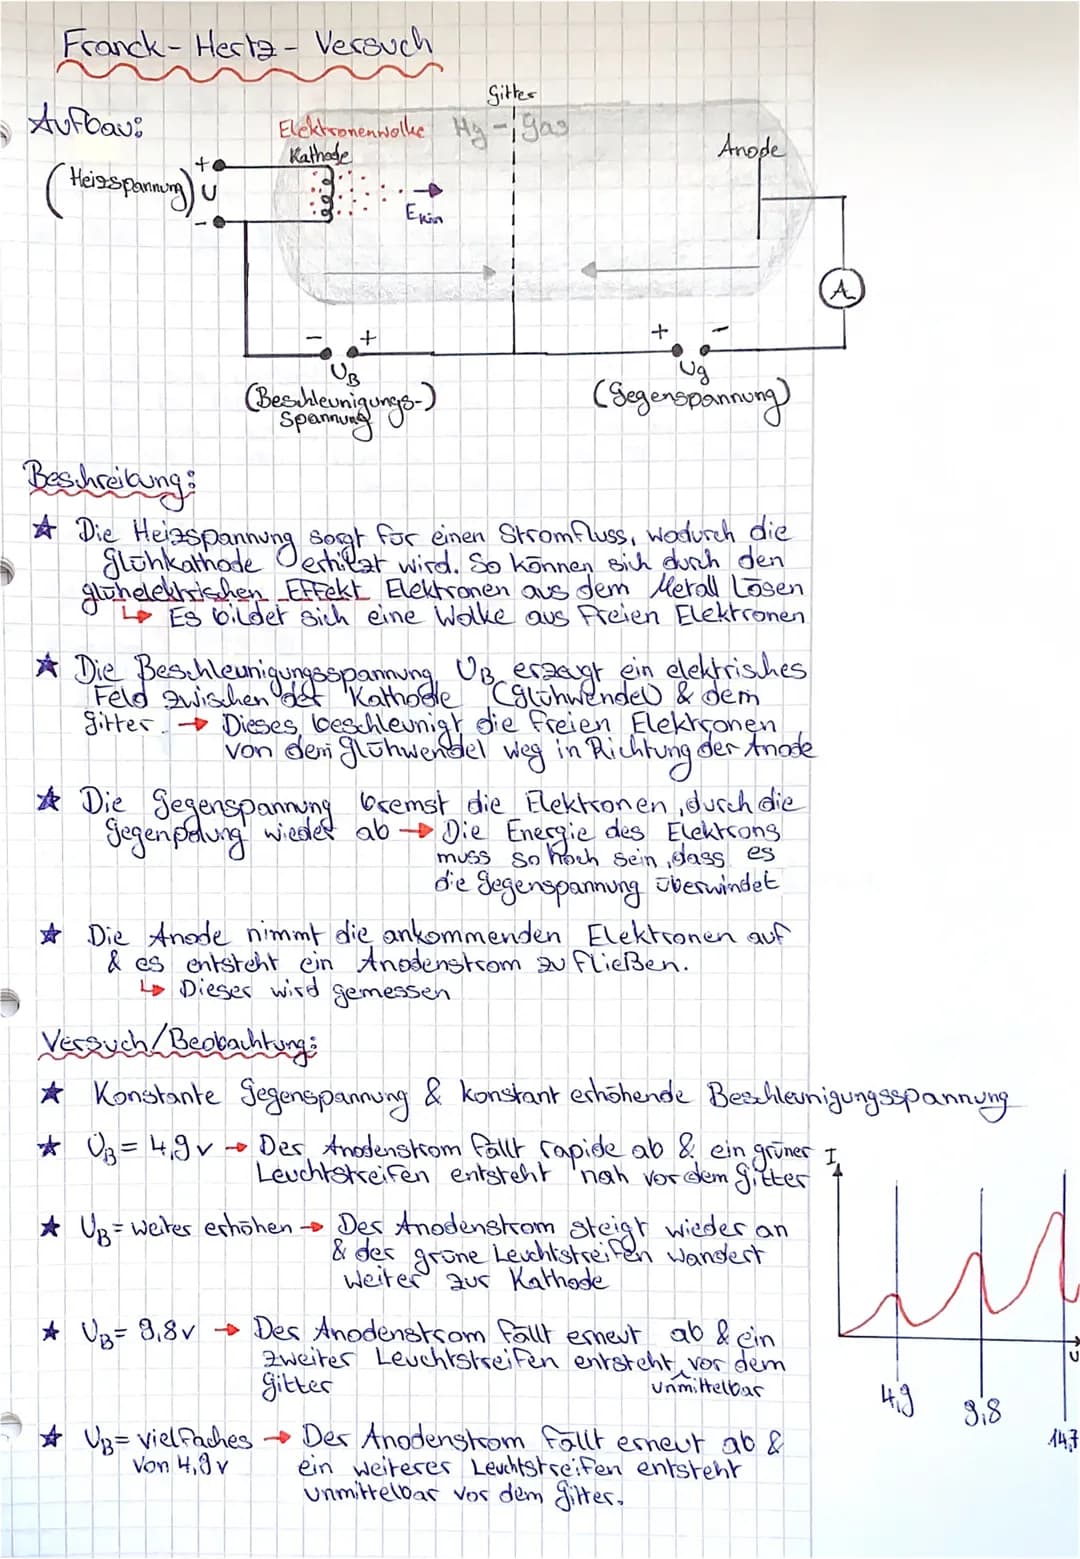 Franck-Hertz-Versuch
Aufbau:
Gitter
Elektronenwolke Hg-Gas
Kathode
Anode
(Heizspannung) U
+
-
Ekin
A
- +
+ -
UB
Ug
(Beschleunigungs-)
Spannung
(Gegenspannung)
Beschreibung:
☆ Die Heizspannung sorgt für einen Stromfluss, wodurch die
Glühkathode erhitzt wird. So können sich durch den
glühelektrischen Effekt Elektronen aus dem Metall lösen
↳ Es bildet sich eine Wolke aus freien Elektronen
☆ Die Beschleunigungsspannung UB erzeugt ein elektrisches
Feld zwischen der Kathode (Glühwendel) & dem
Gitter. → Dieses beschleunigt die freien Elektronen
von dem Glühwendel weg in Richtung der Anode
☆ Die Gegenspannung bremst die Elektronen, durch die
Gegenpolung wieder ab → Die Energie des Elektrons
muss so hoch sein, dass es
die Gegenspannung überwindet
☆ Die Anode nimmt die ankommenden Elektronen auf
& es entsteht ein Anodenstrom zu fließen.
↳ Dieser wird gemessen
Versuch/Beobachtung:
☆ Konstante Gegenspannung & konstant erhöhende Beschleunigungsspannung
☆ UB = 4,9v → Der Anodenstrom fällt rapide ab & ein grüner
Leuchtstreifen entsteht nah vor dem Gitter
☆ UB = weiter erhöhen → Der Anodenstrom steigt wieder an
& der grüne Leuchtstreifen wandert
weiter zur Kathode
☆ UB = 9,8v → Der Anodenstrom fällt erneut ab & ein
zweiter Leuchtstreifen entsteht vor dem
Gitter unmittelbar
☆ UB = vielfaches → Der Anodenstrom fällt erneut ab &
von 4,9v ein weiterer Leuchtstreifen entsteht
unmittelbar vor dem Gitter.
I
U
4,9
9,8
14,7